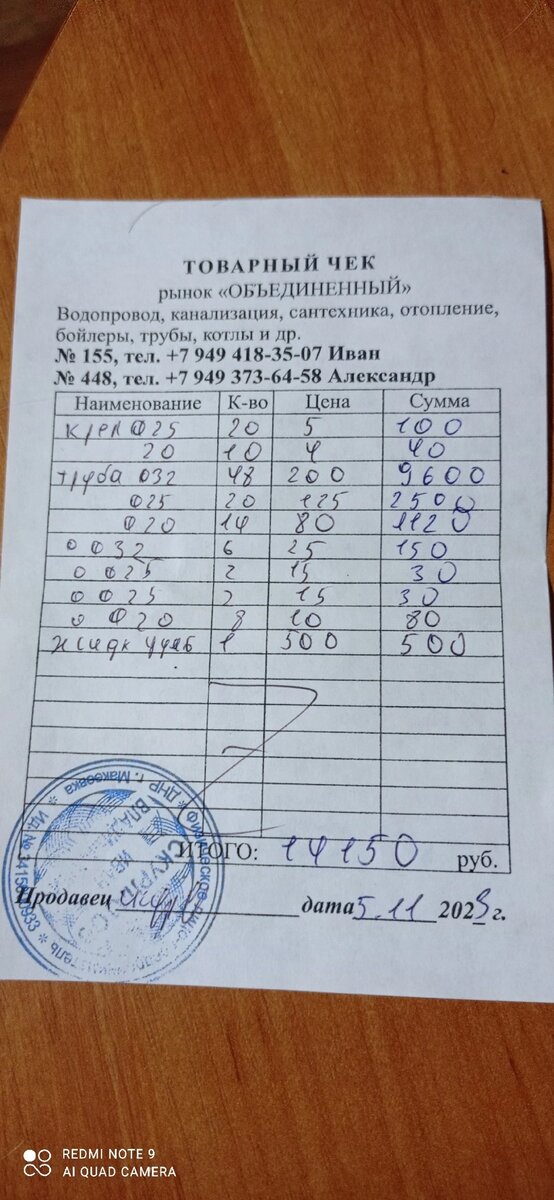 ТОВАРНЫЙ ЧЕК
рынок «ОБЪЕДИНЕННЫЙ»
Водопровод, канализация, сантехника, отопление,
бойлеры, трубы, котлы и др.
№ 155, тел. +7 949 418-35-07 Иван
№ 448, тел. +7 949 373-64-58 Александр
Наименование К-во Цена Сумма
Креп Ф25 20 5 100
20 10 4 40
труба Ф32 48 200 9600
Ф25 20 125 2500
Ф20 14 80 1120
о Ф32 6 25 150
о Ф25 2 15 30
о Ф25 2 15 30
о Ф20 8 10 80
1 500 500
ИТОГО: 14150 руб.
Продавец дата 5.11 2023 г.
ДНР г. Макеевка
REDMI NOTE 9
AI QUAD CAMERA